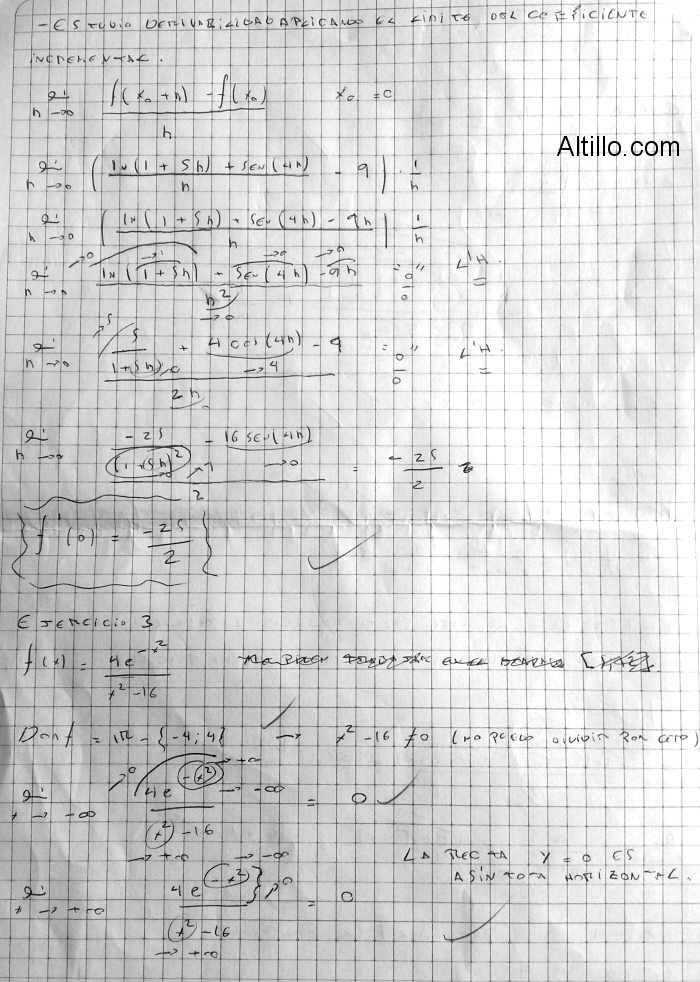 - ESTUDIO DERIVABILIDAD APLICANDO EL LIMITE DEL COEFICIENTE
INCREMENTAL.
lim h→0 f(x₀ + h) - f(x₀) / h x₀ = 0
Altillo.com
lim h→0 ( ln(1 + 5h) + sen(4h) / h - 9 ) · 1/h
lim h→0 ( ln(1 + 5h) + sen(4h) - 9h / h ) 1/h
lim h→0 ln(1 + 5h) + sen(4h) - 9h / h² = "0/0" L'H.
lim h→0 5/(1+5h) + 4 cos(4h) - 9 / 2h = "0/0" L'H.
lim h→0 -25/(1+5h)² - 16 sen(4h) / 2 = -25/2
f'(0) = -25/2
EJERCICIO 3
f(x) = 4e^(-x²) / x²-16
Domf = IR - {-4; 4} → x² - 16 ≠ 0 (NO PUEDO DIVIDIR POR CERO)
lim x→-∞ 4e^(-x²) / x² - 16 = 0
LA RECTA y = 0 ES
ASINTOTA HORIZONTAL.
lim x→+∞ 4e^(-x²) / x² - 16 = 0